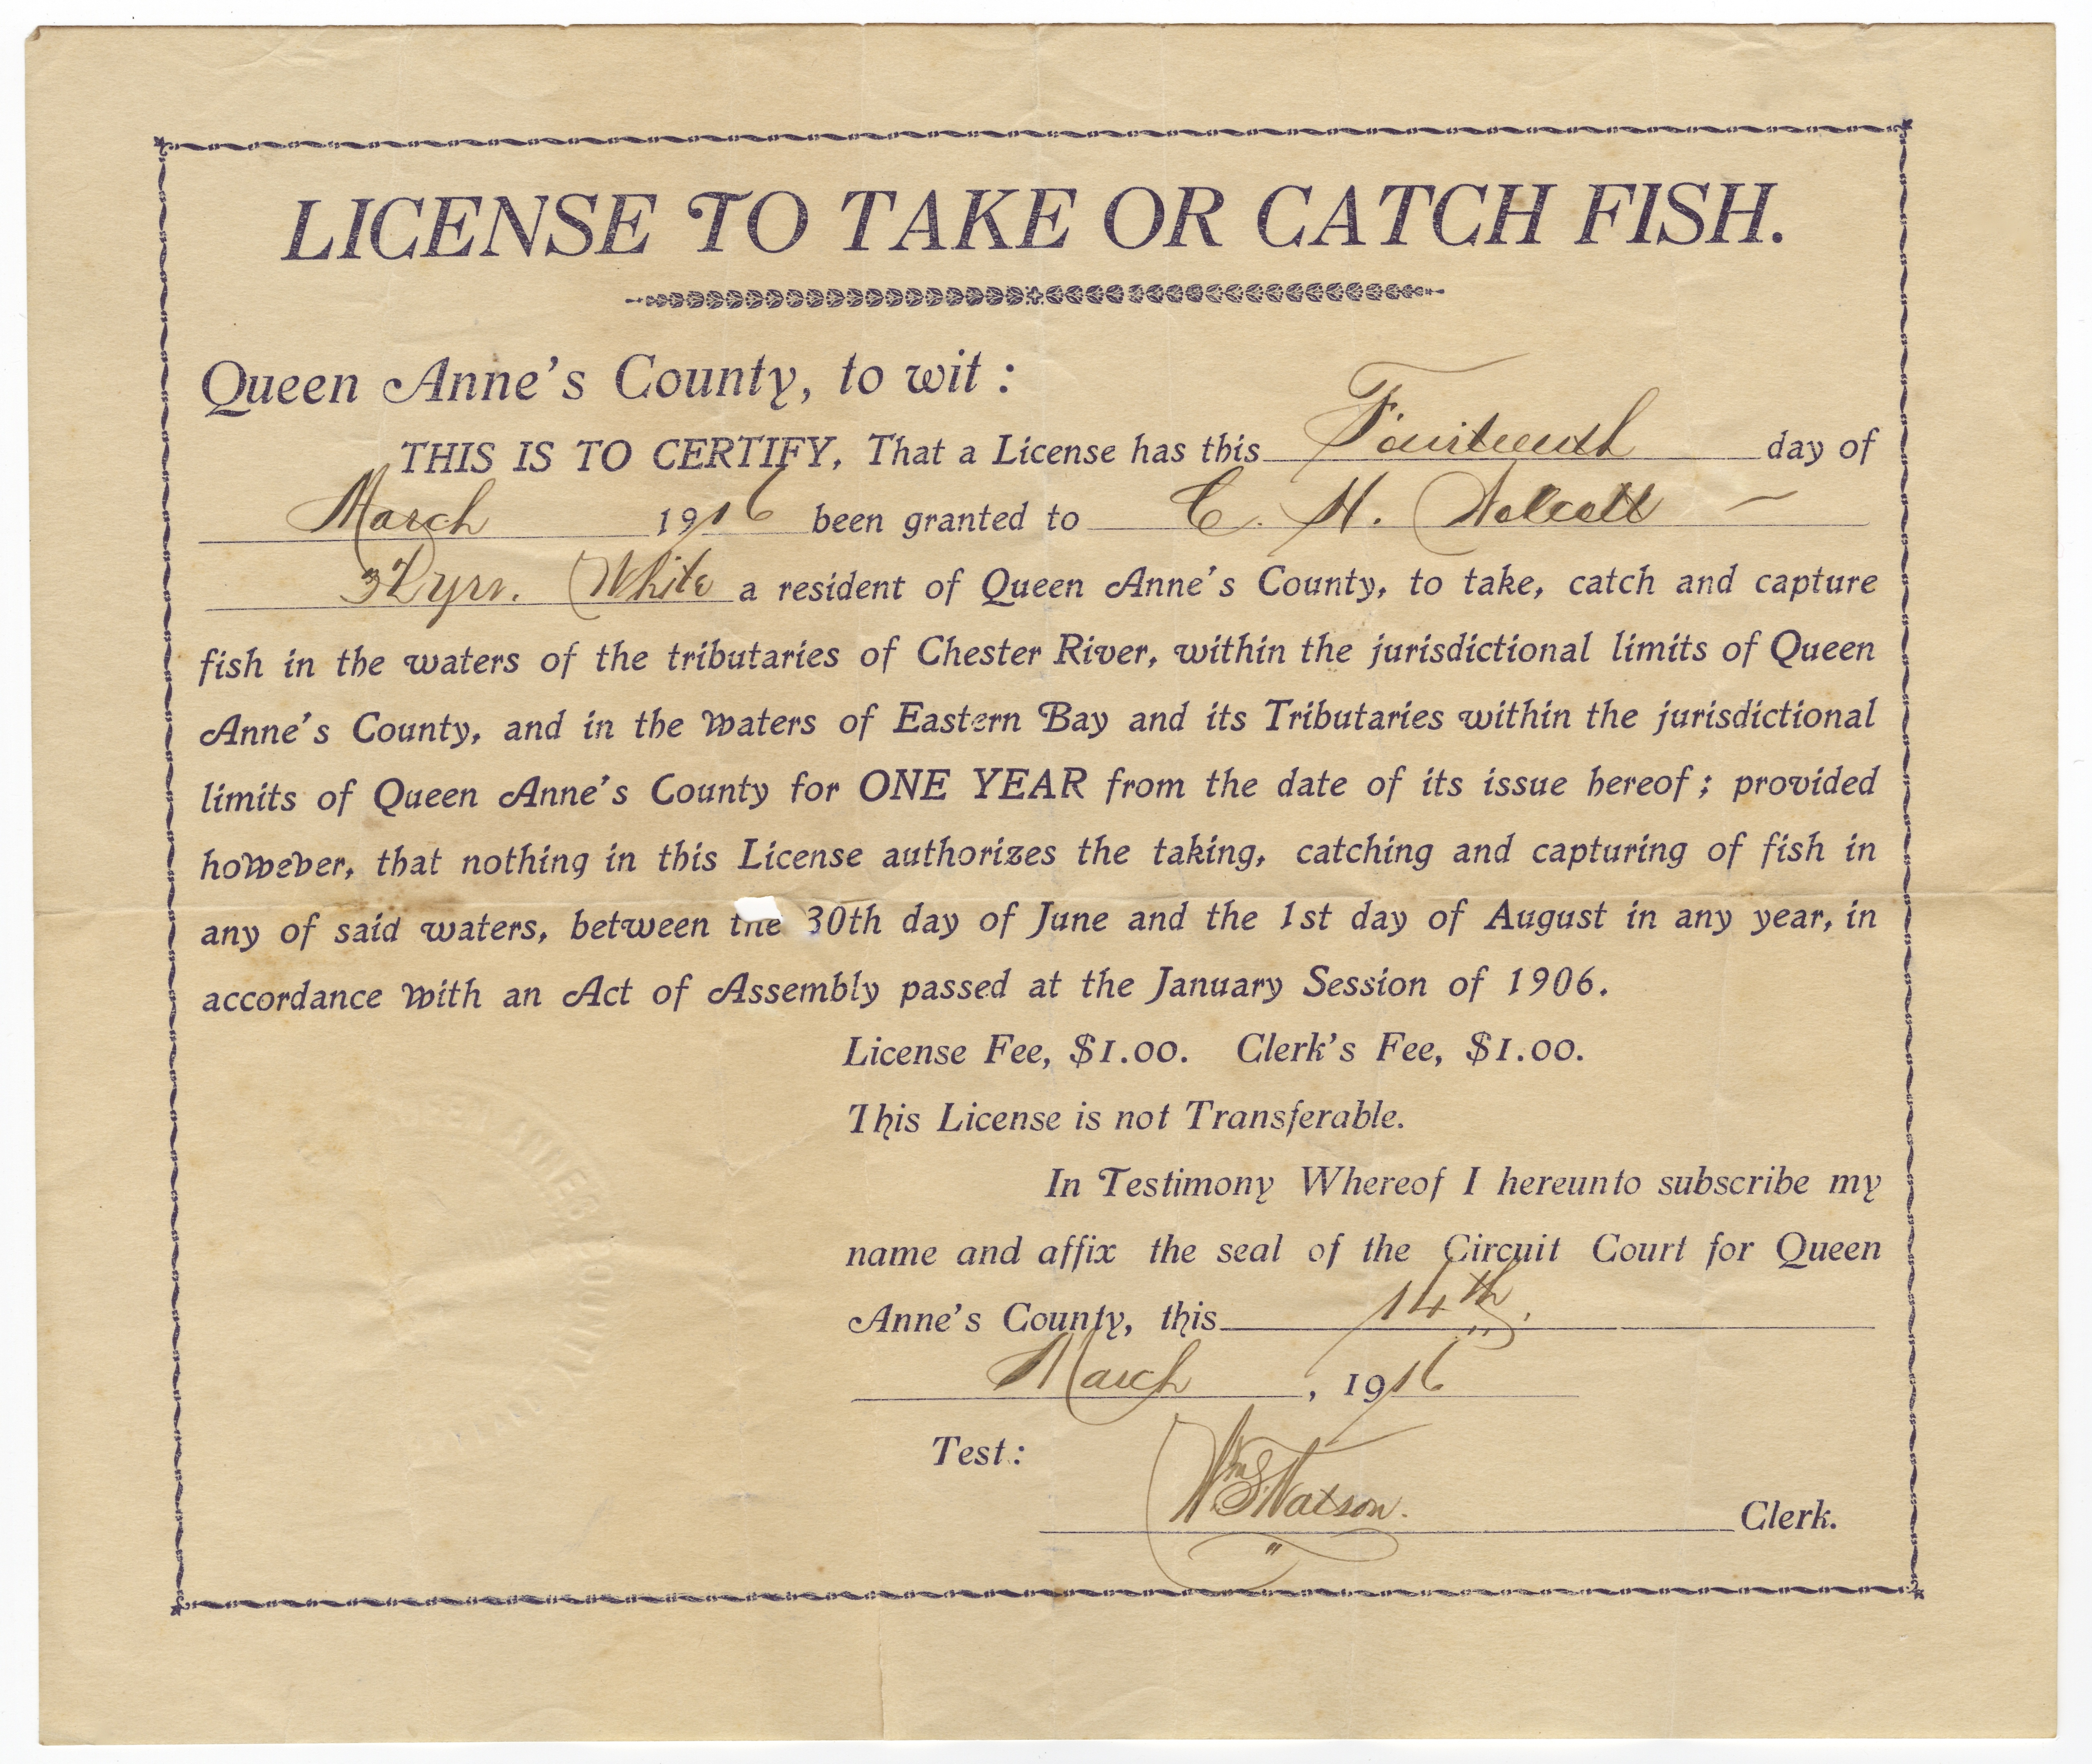 LICENSE TO TAKE OR CATCH FISH.
Queen Anne's County, to wit :
THIS IS TO CERTIFY, That a License has this Fourteenth day of
March 1916 been granted to C. H.
32 yrs. White a resident of Queen Anne's County, to take, catch and capture
fish in the waters of the tributaries of Chester River, within the jurisdictional limits of Queen
Anne's County, and in the Waters of Eastern Bay and its Tributaries within the jurisdictional
limits of Queen Anne's County for ONE YEAR from the date of its issue hereof ; provided
however, that nothing in this License authorizes the taking, catching and capturing of fish in
any of said waters, between the 30th day of June and the 1st day of August in any year, in
accordance with an Act of Assembly passed at the January Session of 1906.
License Fee, $1.00. Clerk's Fee, $1.00.
This License is not Transferable.
In Testimony Whereof I hereunto subscribe my
name and affix the seal of the Circuit Court for Queen
Anne's County, this 14th.
March, 1916
Test:
Wm S Watson. Clerk.